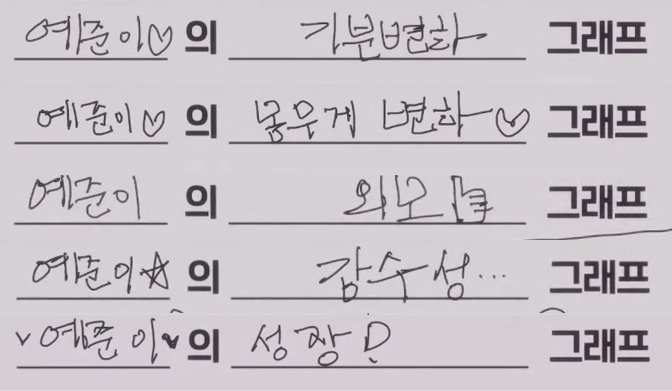 예준이♡의 기분변화 그래프
예준이♡의 몸무게 변화♡ 그래프
예준이의 외모 그래프
예준이☆의 감수성... 그래프
예준이♥의 성장! 그래프